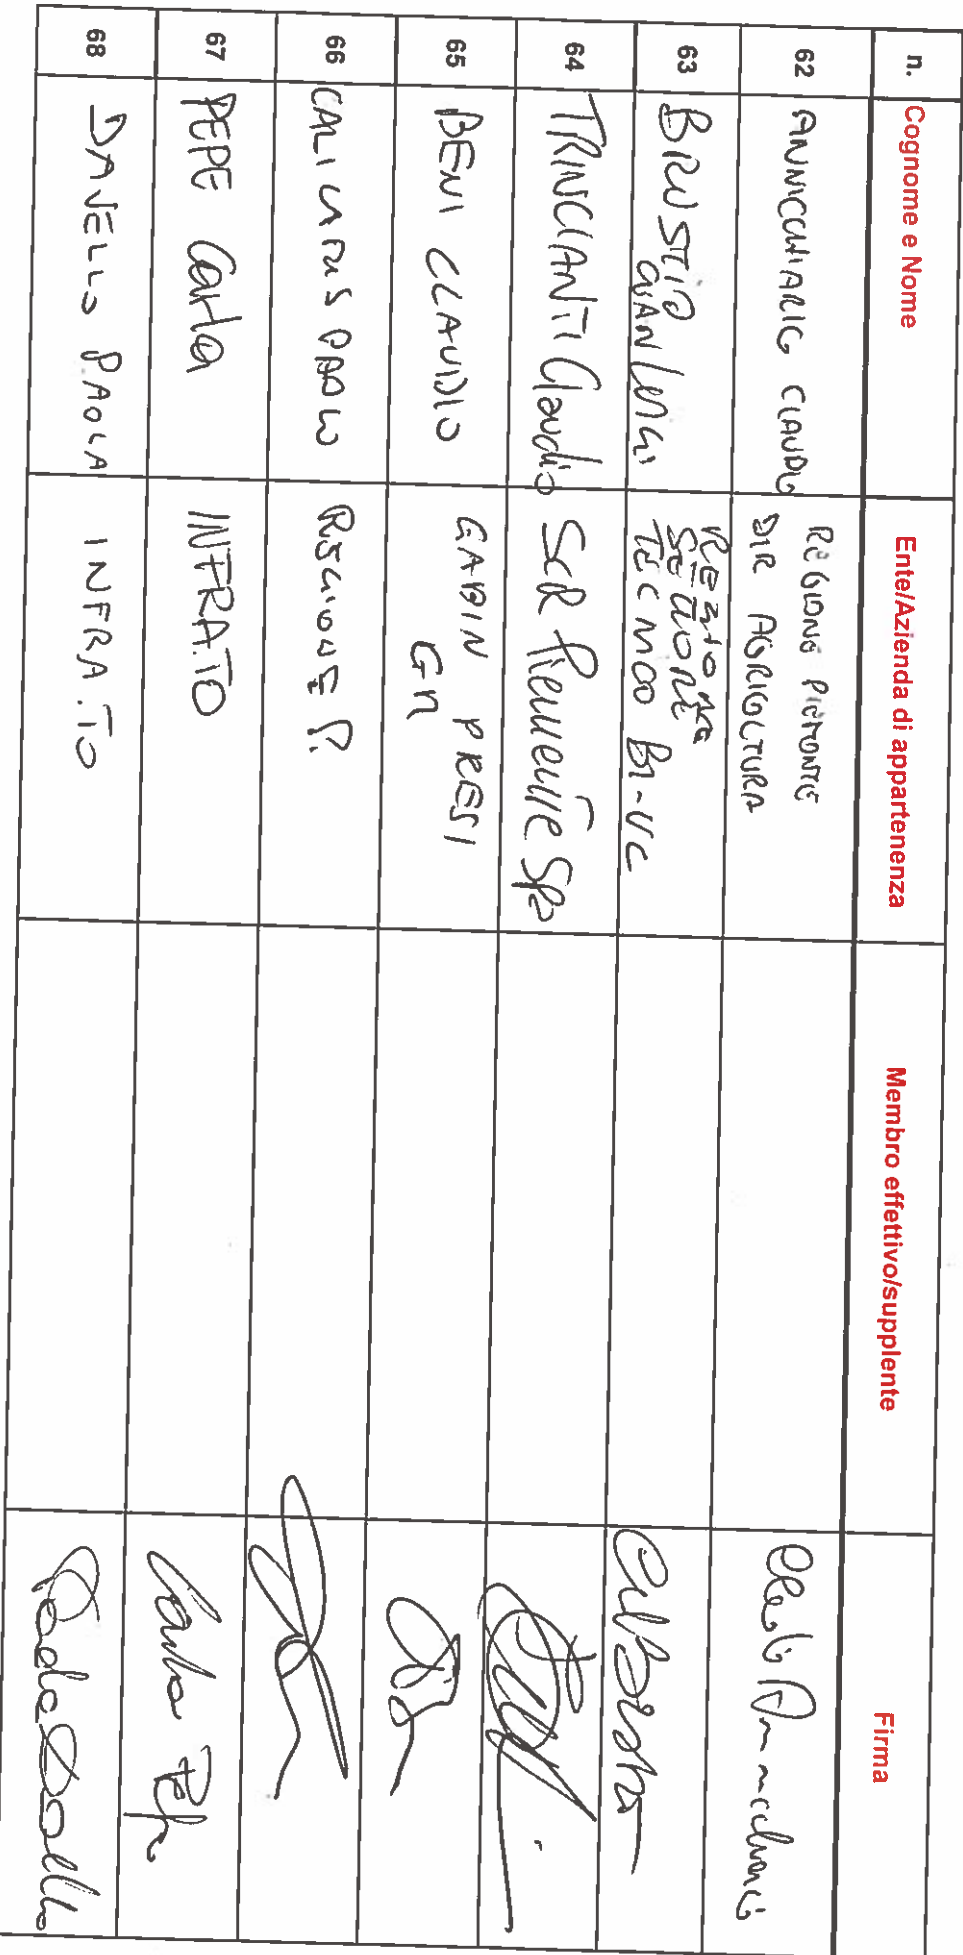 n. Cognome e Nome Ente/Azienda di appartenenza Membro effettivo/supplente Firma
62 ANNICCHIARICO CLAUDIO REGIONE PIEMONTE
DIR AGRICOLTURA
63 BRUSTIO
GIANLUIGI REGIONE
SETTORE
TECNICO BI-VC
64 TRINCIANTI Claudio SCR Piemonte Spa
65 BENI CLAUDIO GABIN PRESI
GR
66 PAOLO REGIONE P.
67 PEPE Carla INFRA.TO Carla Pepe
68 DAVELLO PAOLA INFRA.TO